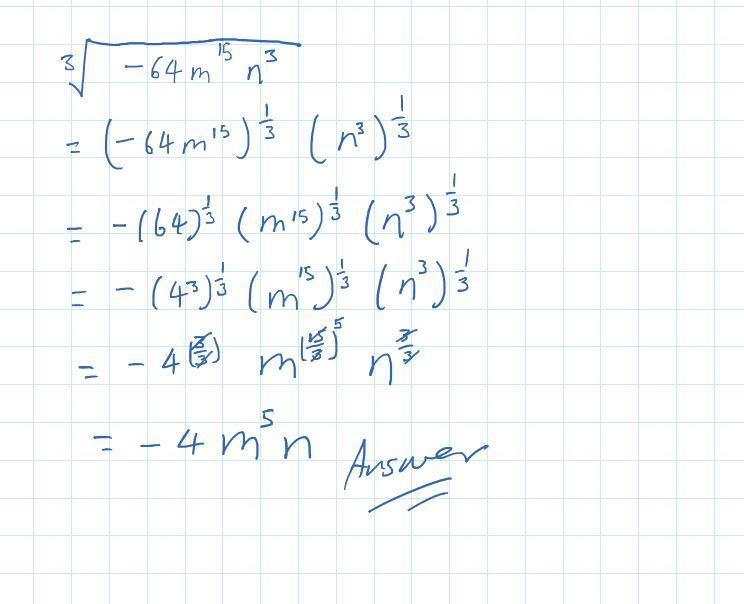 ∛(-64m¹⁵n³)
= (-64m¹⁵)^(1/3) (n³)^(1/3)
= -(64)^(1/3) (m¹⁵)^(1/3) (n³)^(1/3)
= -(4³)^(1/3) (m¹⁵)^(1/3) (n³)^(1/3)
= -4^(3/3) m^(15/3)⁵ n^(3/3)
= -4m⁵n Answer